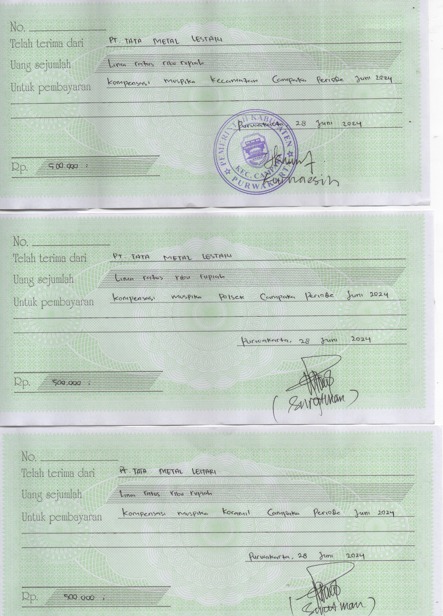 No.
Telah terima dari PT. TATA METAL LESTARI
Uang sejumlah Lima ratus ribu rupiah
Untuk pembayaran kompensasi muspika kecamatan Campaka Periode Juni 2024
Purwakarta 28 Juni 2024
PEMERINTAH KABUPATEN
KEC. CAMPAKA
PURWAKARTA
Rp. 500.000 :
No.
Telah terima dari PT. TATA METAL LESTARI
Uang sejumlah Lima ratus ribu rupiah
Untuk pembayaran kompensasi muspika polsek Campaka Periode Juni 2024
Purwakarta, 28 Juni 2024
Rp. 500.000 :
(Suratman)
No.
Telah terima dari PT TATA METAL LESTARI
Uang sejumlah Lima ratus ribu rupiah
Untuk pembayaran kompensasi muspika koramil Campaka Periode Juni 2024
Purwakarta, 28 Juni 2024
Rp. 500.000 :
(Suratman)